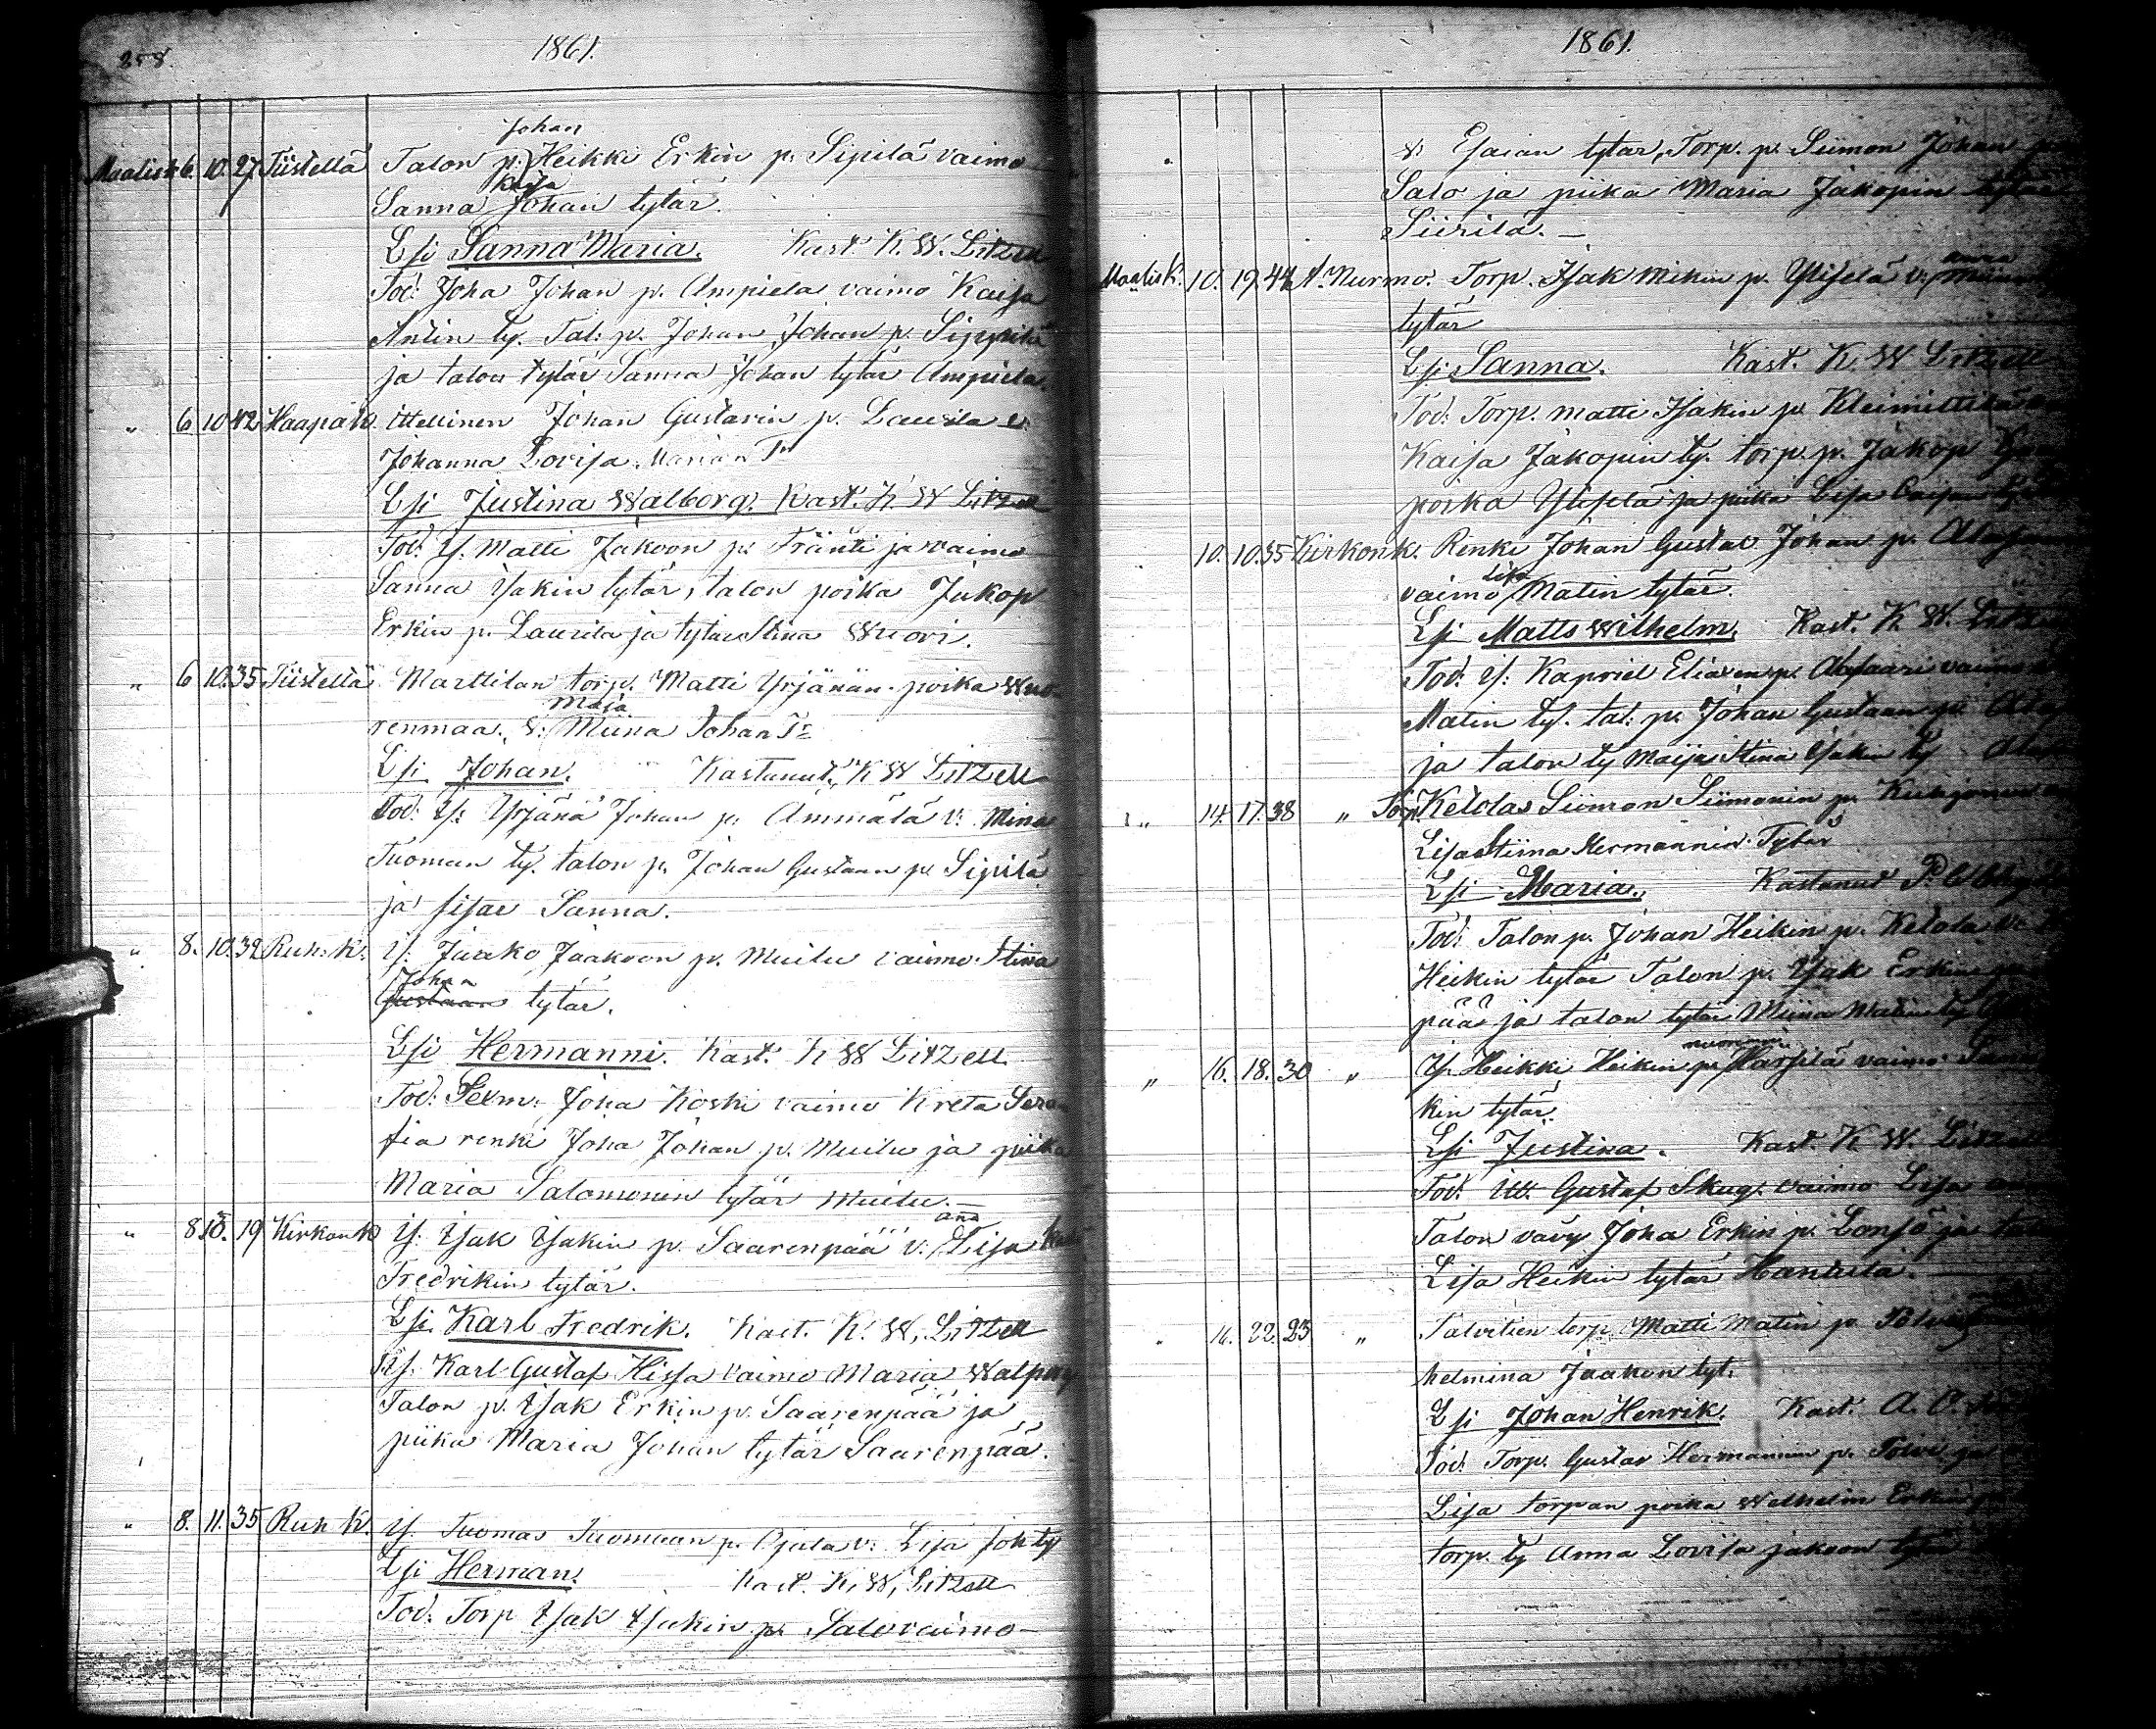 258.
1861.
Johan
Maalisk 6. 10. 27 Tiistellä Talon p. Heikki Erkin p. Sipilä vaimo
Kaisa
Sanna Johan tytär.
Lsi Sanna Maria. Kast. K. W. Litzell
Tod: Joha Johan p. Ampiela vaimo Kaisa
Antin ty. Tal: p. Johan Johan p. Sippilä
ja talon tytär Sanna Johan tytär Ampiela.
" 6 10 42 Haapak. Ittellinen Johan Gustavin p. Laurila v.
Johanna Lovisa Marian Tr
Lsi Justina Walborg. Kast. K. W Litzell
Tod: Is. Matti Jakoon p. Tränti ja vaimo
Sanna Isakin tytär, talon poika Jakop
Erkin p. Laurila ja tytär Stina Wuori.
" 6 10. 35 Tiistellä Marttilan torp. Matti Yrjänän poika Wuo
Maja
renmaa. v: Miina Johan Tr
Lsi Johan. Kastanut K W Litzell
Tod: Is: Yrjänä Johan p. Ammälä v: Mina
Tuoman ty. talon p. Johan Gustaan p. Sipilä
ja sisar Sanna.
" 8. 10. 32 Ruh. K. Is. Jaako Jaakoon p. Muilu vaimo Stina
Johan
Gustaan tytär.
Lsi Hermanni. Kast. K W Litzell
Tod: Joha Koski vaimo Kreta Sera
fia renki Joha Johan p. Muilu ja piika
Maria Salomonin tytär Muilu.
ana
" 8 10. 19 Kirkonk Is. Isak Isakin p. Saarenpää v. Lisa
Fredrikin tytär.
Lsi Karl Fredrik. Kast. K. W. Litzell
Is: Karl Gustaf Hissa vaimo Maria Walpuy
Talon p. Isak Erkin p. Saarenpää ja
piika Maria Johan tytär Saarenpää.
" 8. 11. 35 Ruh K. Is. Tuomas Tuomaan p. Ojala v. Lisa Joh ty
Lsi Herman. Kast. K. W. Litzell
Tod: Torp Isak Isakin p. Salo vaimo
1861.
Esaian tytär, Torp. p. Siimon Johan
Salo ja piika Maria Jakopin tytär
Siirilä.
Maalisk. 10. 19. 44 A. Nurmo. Torp. Isak Mikin p. Yliselä v.
tytär
Lsi Sanna. Kast. K. W Litzell
Tod: Torp. Matti Isakin p. Kleimittilä
Kaisa Jakopin ty. torp. p. Jakop
poika Yliselä ja piika Lisa
10. 10. 35 Kirkonk. Renki Johan Gustav Johan p.
Lisa
vaimo Matin tytär.
Lsi Matts Wilhelm. Kast. K. W.
Tod: Is: Kapriel Eliaxen p. Alasaari vaimo
Matin ty. tal: p. Johan Gustaan p.
ja talon ty Maija Stina Isakin ty
" 14. 17. 38 " Torp. Ketolas Siimon Siimonin p.
Lisa Stiina Hermannin Tytär
Lsi Maria. Kastanut
Tod: Talon p. Johan Heikin p. Ketola v.
Heikin tytär Talon p. Isak Erkin
pää ja talon tytär Miina Matin ty
" 16. 18. 30 " Is. Heikki Heikin p. Harsilä vaimo
kin tytär.
Lsi Justina. Kast. K. W. Litzell
Tod: Gustaf Skug. vaimo Lisa
Talon vävy Joha Erkin p. Lonsä ja
Lisa Heikin tytär Hantula.
16. 22. 23 " Talvitien torp. Matti Matin p.
helmina Jaakon tyt.
Lsi Johan Henrik. Kast. A.
Tod: Torp. Gustav Hermannin p.
Lisa torpan poika Wilhelm Erkin
torp. ty Anna Lovisa jakoon tytär